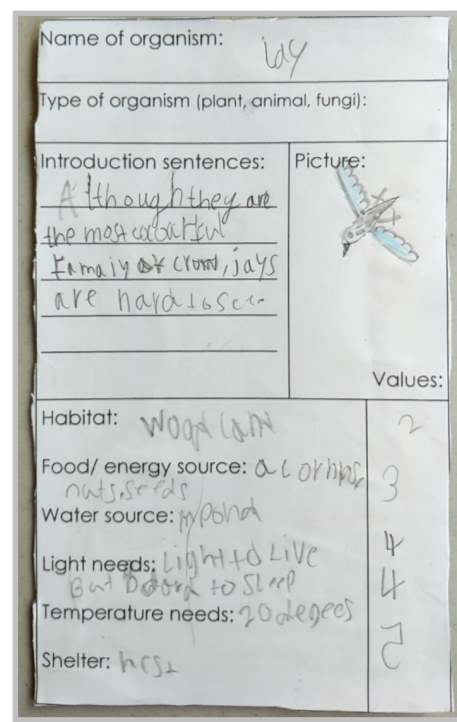 Name of organism: jay
Type of organism (plant, animal, fungi):
Introduction sentences:
Although they are
the most
family of crow, jays
are hard to see
Picture:
Values:
Habitat: 2
Food/ energy source: 3
nuts, seeds
Water source: pond 4
Light needs: Light to Live 4
But to sleep
Temperature needs: 20 degees 5
Shelter: